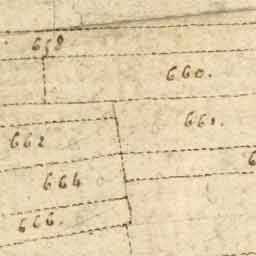 658
660.
661.
662
664
666.